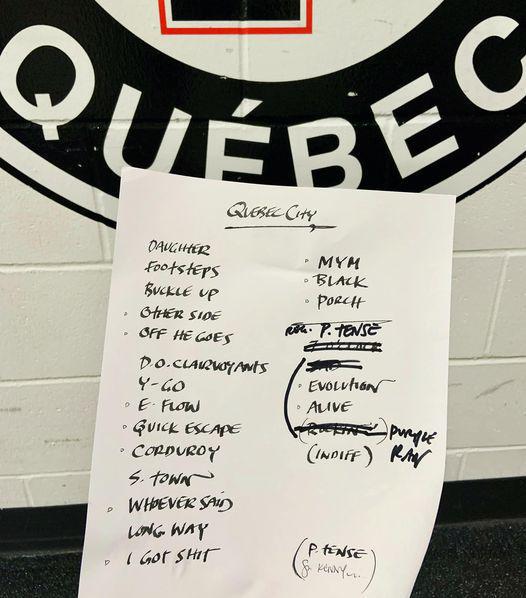 QUÉBEC
QUEBEC CITY
DAUGHTER
FOOTSTEPS
BUCKLE UP
OTHER SIDE
OFF HE GOES
D.O. CLAIRVOYANTS
Y-GO
E. FLOW
QUICK ESCAPE
CORDUROY
S. TOWN
WHOEVER SAID
LONG WAY
I GOT SHIT
MYM
BLACK
PORCH
P. TENSE
EVOLUTION
ALIVE
PURPLE
RAIN
(INDIFF)
(P. TENSE
KENNY...)